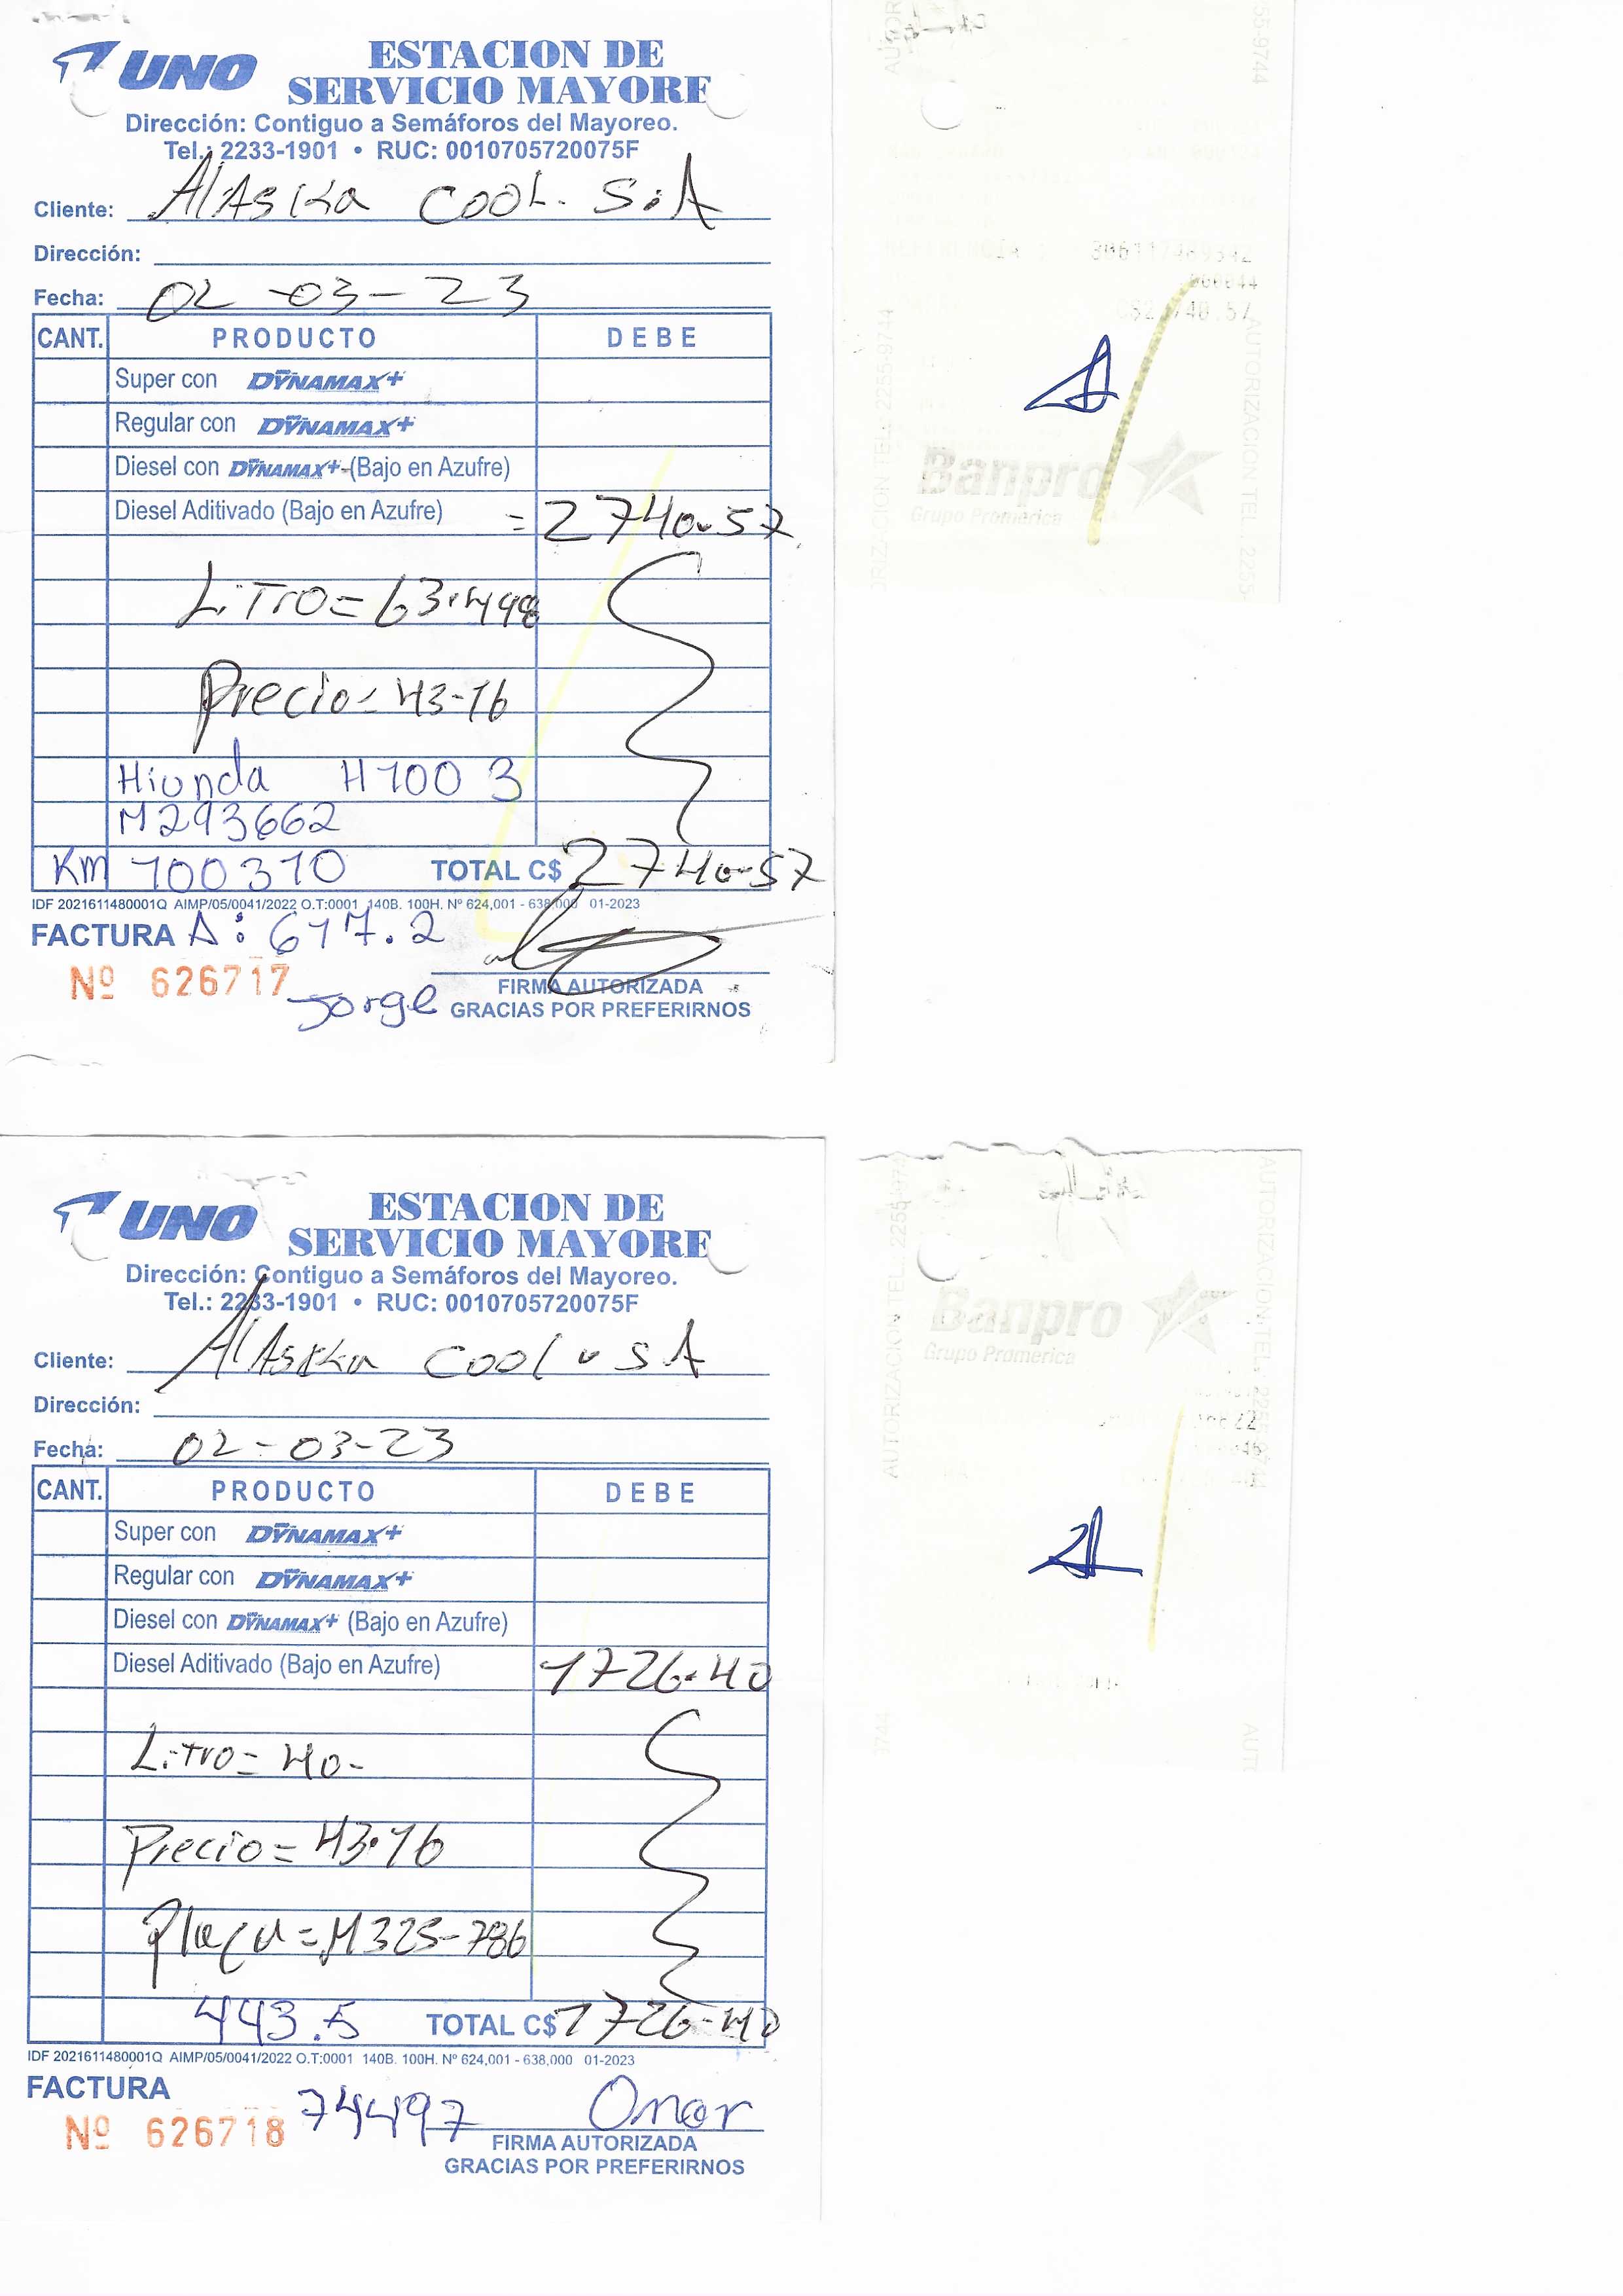 UNO
ESTACION DE
SERVICIO MAYORE
Dirección: Contiguo a Semáforos del Mayoreo.
Tel.: 2233-1901 • RUC: 0010705720075F
Cliente: Alaska cool. S.A
Dirección:
Fecha: 02-03-23
CANT. PRODUCTO DEBE
Super con DYNAMAX+
Regular con DYNAMAX+
Diesel con DYNAMAX+ (Bajo en Azufre)
Diesel Aditivado (Bajo en Azufre) = 2740.57
Litro= 63.498
Precio= 43-16
Hiunda H100 3
M293662
Km 100310 TOTAL C$ 2740-57
IDF 2021611480001Q AIMP/05/0041/2022 O.T:0001 140B. 100H. Nº 624,001 - 638,000 01-2023
FACTURA A: 617.2
Nº 626717 Jorge
FIRMA AUTORIZADA
GRACIAS POR PREFERIRNOS
REFERENCIA
000044
C$2,740.57
Banpro
Grupo Promerica
AUTORIZACION TEL. 2255-9744
UNO
ESTACION DE
SERVICIO MAYORE
Dirección: Contiguo a Semáforos del Mayoreo.
Tel.: 2233-1901 • RUC: 0010705720075F
Cliente: Alaska cool S A
Dirección:
Fecha: 02-03-23
CANT. PRODUCTO DEBE
Super con DYNAMAX+
Regular con DYNAMAX+
Diesel con DYNAMAX+ (Bajo en Azufre)
Diesel Aditivado (Bajo en Azufre) 1726.40
Litro= 40-
Precio= 43.16
Placa= M325-786
443.5 TOTAL C$ 1726-40
IDF 2021611480001Q AIMP/05/0041/2022 O.T:0001 140B. 100H. Nº 624,001 - 638,000 01-2023
FACTURA
Nº 626718 74497 Omar
FIRMA AUTORIZADA
GRACIAS POR PREFERIRNOS
Banpro
Grupo Promerica
AUTORIZACION TEL. 2255-9744